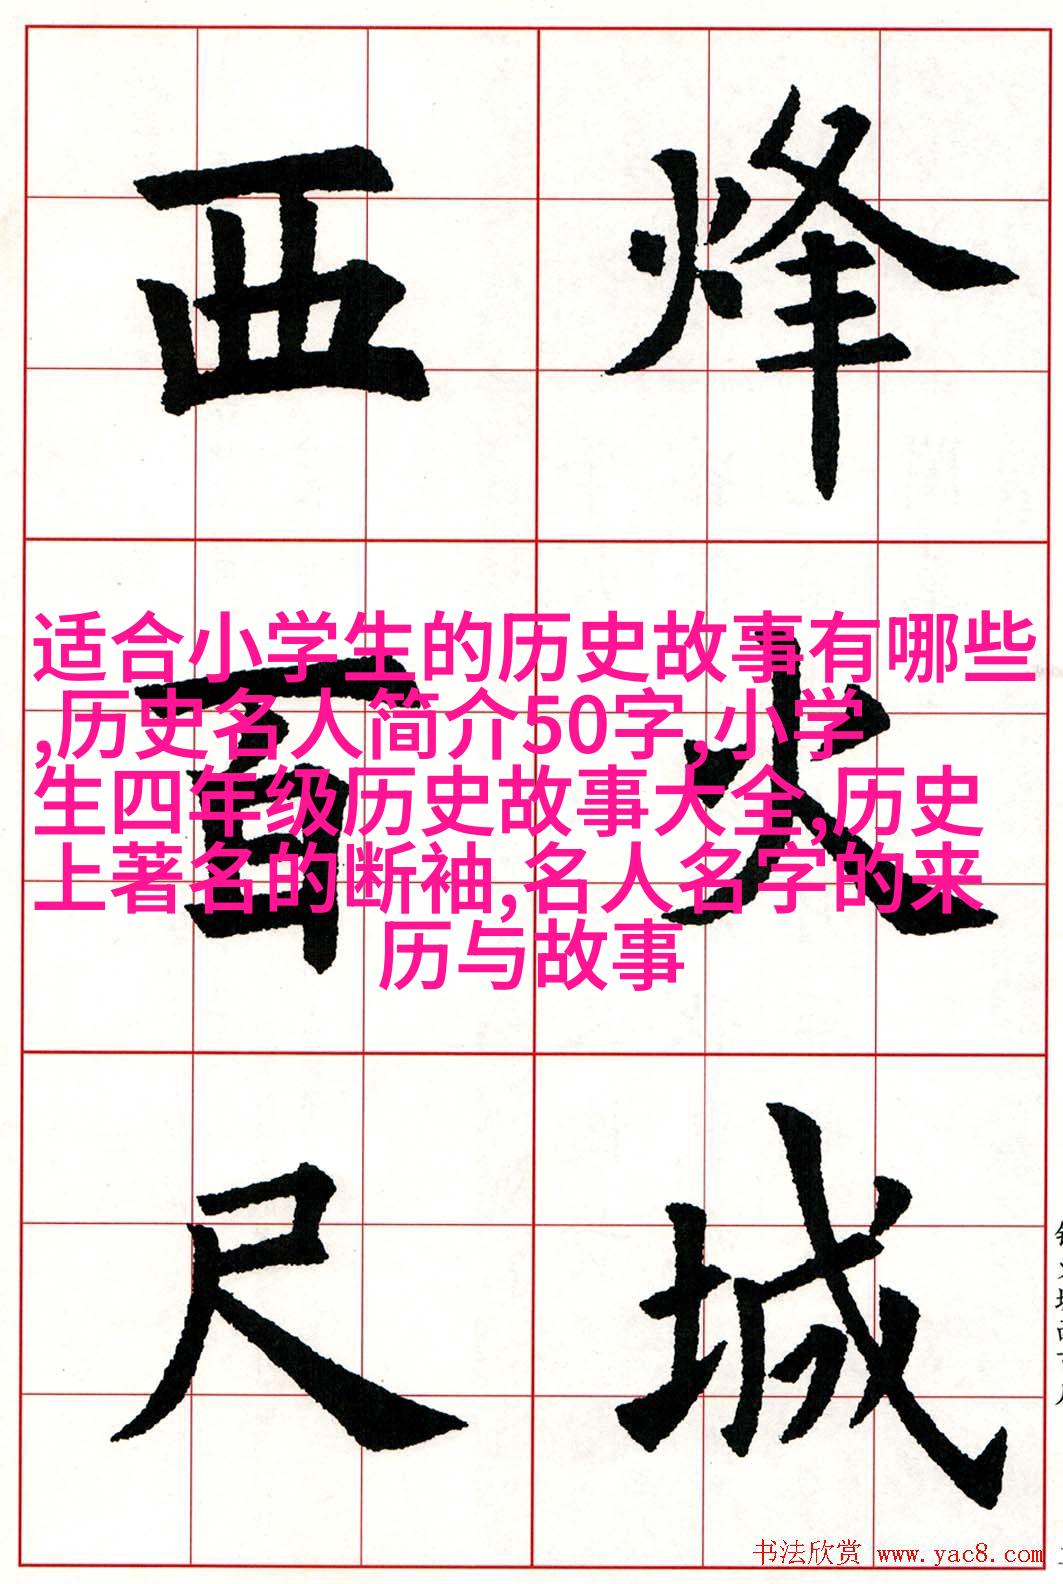 烽火城
西百尺
适合小学生的历史故事有哪些
,历史名人简介50字,小学
生四年级历史故事大全,历史
上著名的断袖,名人名字的来
历与故事
书法欣赏 www.yac8.com